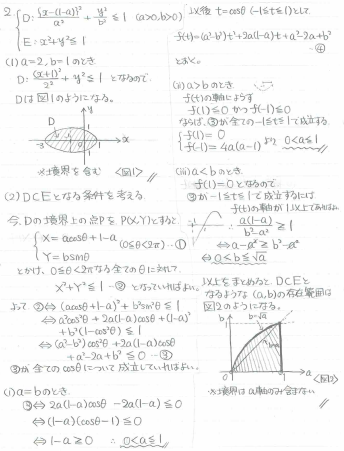 2 { D: {x-(1-a)}²/a² + y²/b² ≦ 1 (a>0, b>0)
E: x²+y² ≦ 1
(1) a=2, b=1のとき
D: (x+1)²/2² + y² ≦ 1 となるので
Dは図1のようになる。
y
D
-3
-1
1
x
※境界を含む <図1>
(2) D⊂Eとなる条件を考える
今、Dの境界上の点Pを P(X,Y)とすると
{ X = acosθ+1-a
Y = bsinθ (0≦θ<2π) …①
とかけ、0≦θ<2πなる全てのθに対して
X²+Y² ≦ 1 …② となっていればよい。
よって ②⇔ (acosθ+1-a)²+b²sin²θ ≦ 1
⇔ a²cos²θ + 2a(1-a)cosθ+(1-a)²
+b²(1-cos²θ) ≦ 1
⇔ (a²-b²)cos²θ + 2a(1-a)cosθ
+a²-2a+b² ≦ 0 …③
③が全てのcosθについて成立していればよい。
(i) a=bのとき
③⇔ 2a(1-a)cosθ - 2a(1-a) ≦ 0
⇔ (1-a)(cosθ-1) ≦ 0
⇔ 1-a ≧ 0 ∴ 0<a≦1
以後 t=cosθ (-1≦t≦1)として
f(t)=(a²-b²)t²+2a(1-a)t+a²-2a+b²
…④
とおく。
(ii) a>bのとき
f(t)の軸によらず
f(1)≦0 かつ f(-1)≦0
ならば、③が全ての-1≦t≦1で成立する
{ f(1)=0
f(-1)=4a(a-1) より 0<a≦1
(iii) a<bのとき
f(1)=0となるので
③が-1≦t≦1で成立するには
f(t)の軸が1以上であればよい
∴ a(1-a)/b²-a² ≧ 1
⇔ a-a² ≧ b²-a²
⇔ 0<b≦√a
以上をまとめると D⊂Eと
なるような (a,b)の存在範囲は
図2のようになる。
b
b=√a
1
b=a
0
1
a
<図2>
※境界は a軸のみ含まない